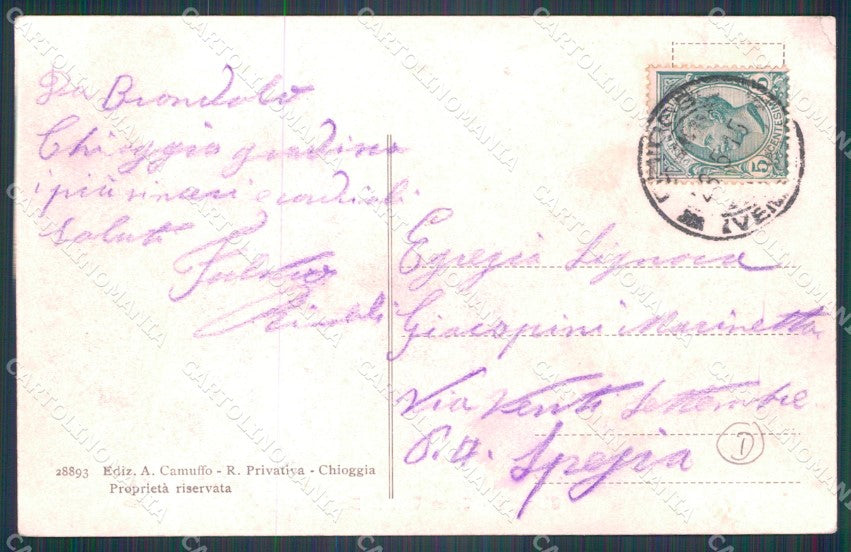 Da Brondolo
Chioggia gradina
i più sinceri e cordiali
saluti
Egregia Signora
Giacopini Marinetta
Via Venti Settembre
Spezia
28893 Ediz. A. Camuffo - R. Privativa - Chioggia
Proprietà riservata
CARTOLINOMANIA